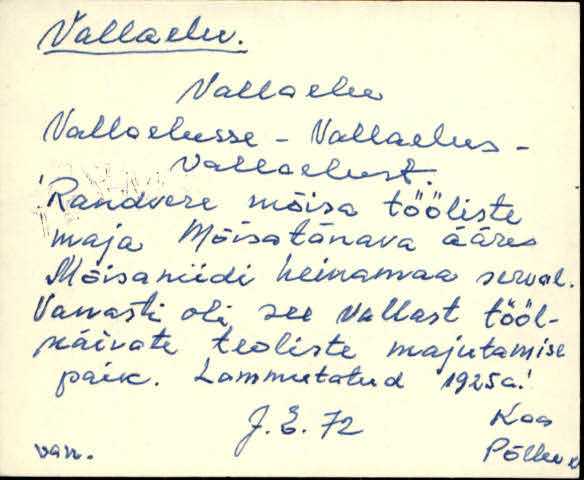 Vallaelu.
Vallaelu
Vallaelusse - Vallaelus -
Vallaelust.
Randvere mõisa tööliste
maja Mõisatänava ääres
Mõisaniidi heinamaa serval.
Vanasti oli see vallast tööl-
käivate teoliste majutamise
paik. Lammutatud 1925a.
J. E. 72
Koa
Põllu
van.